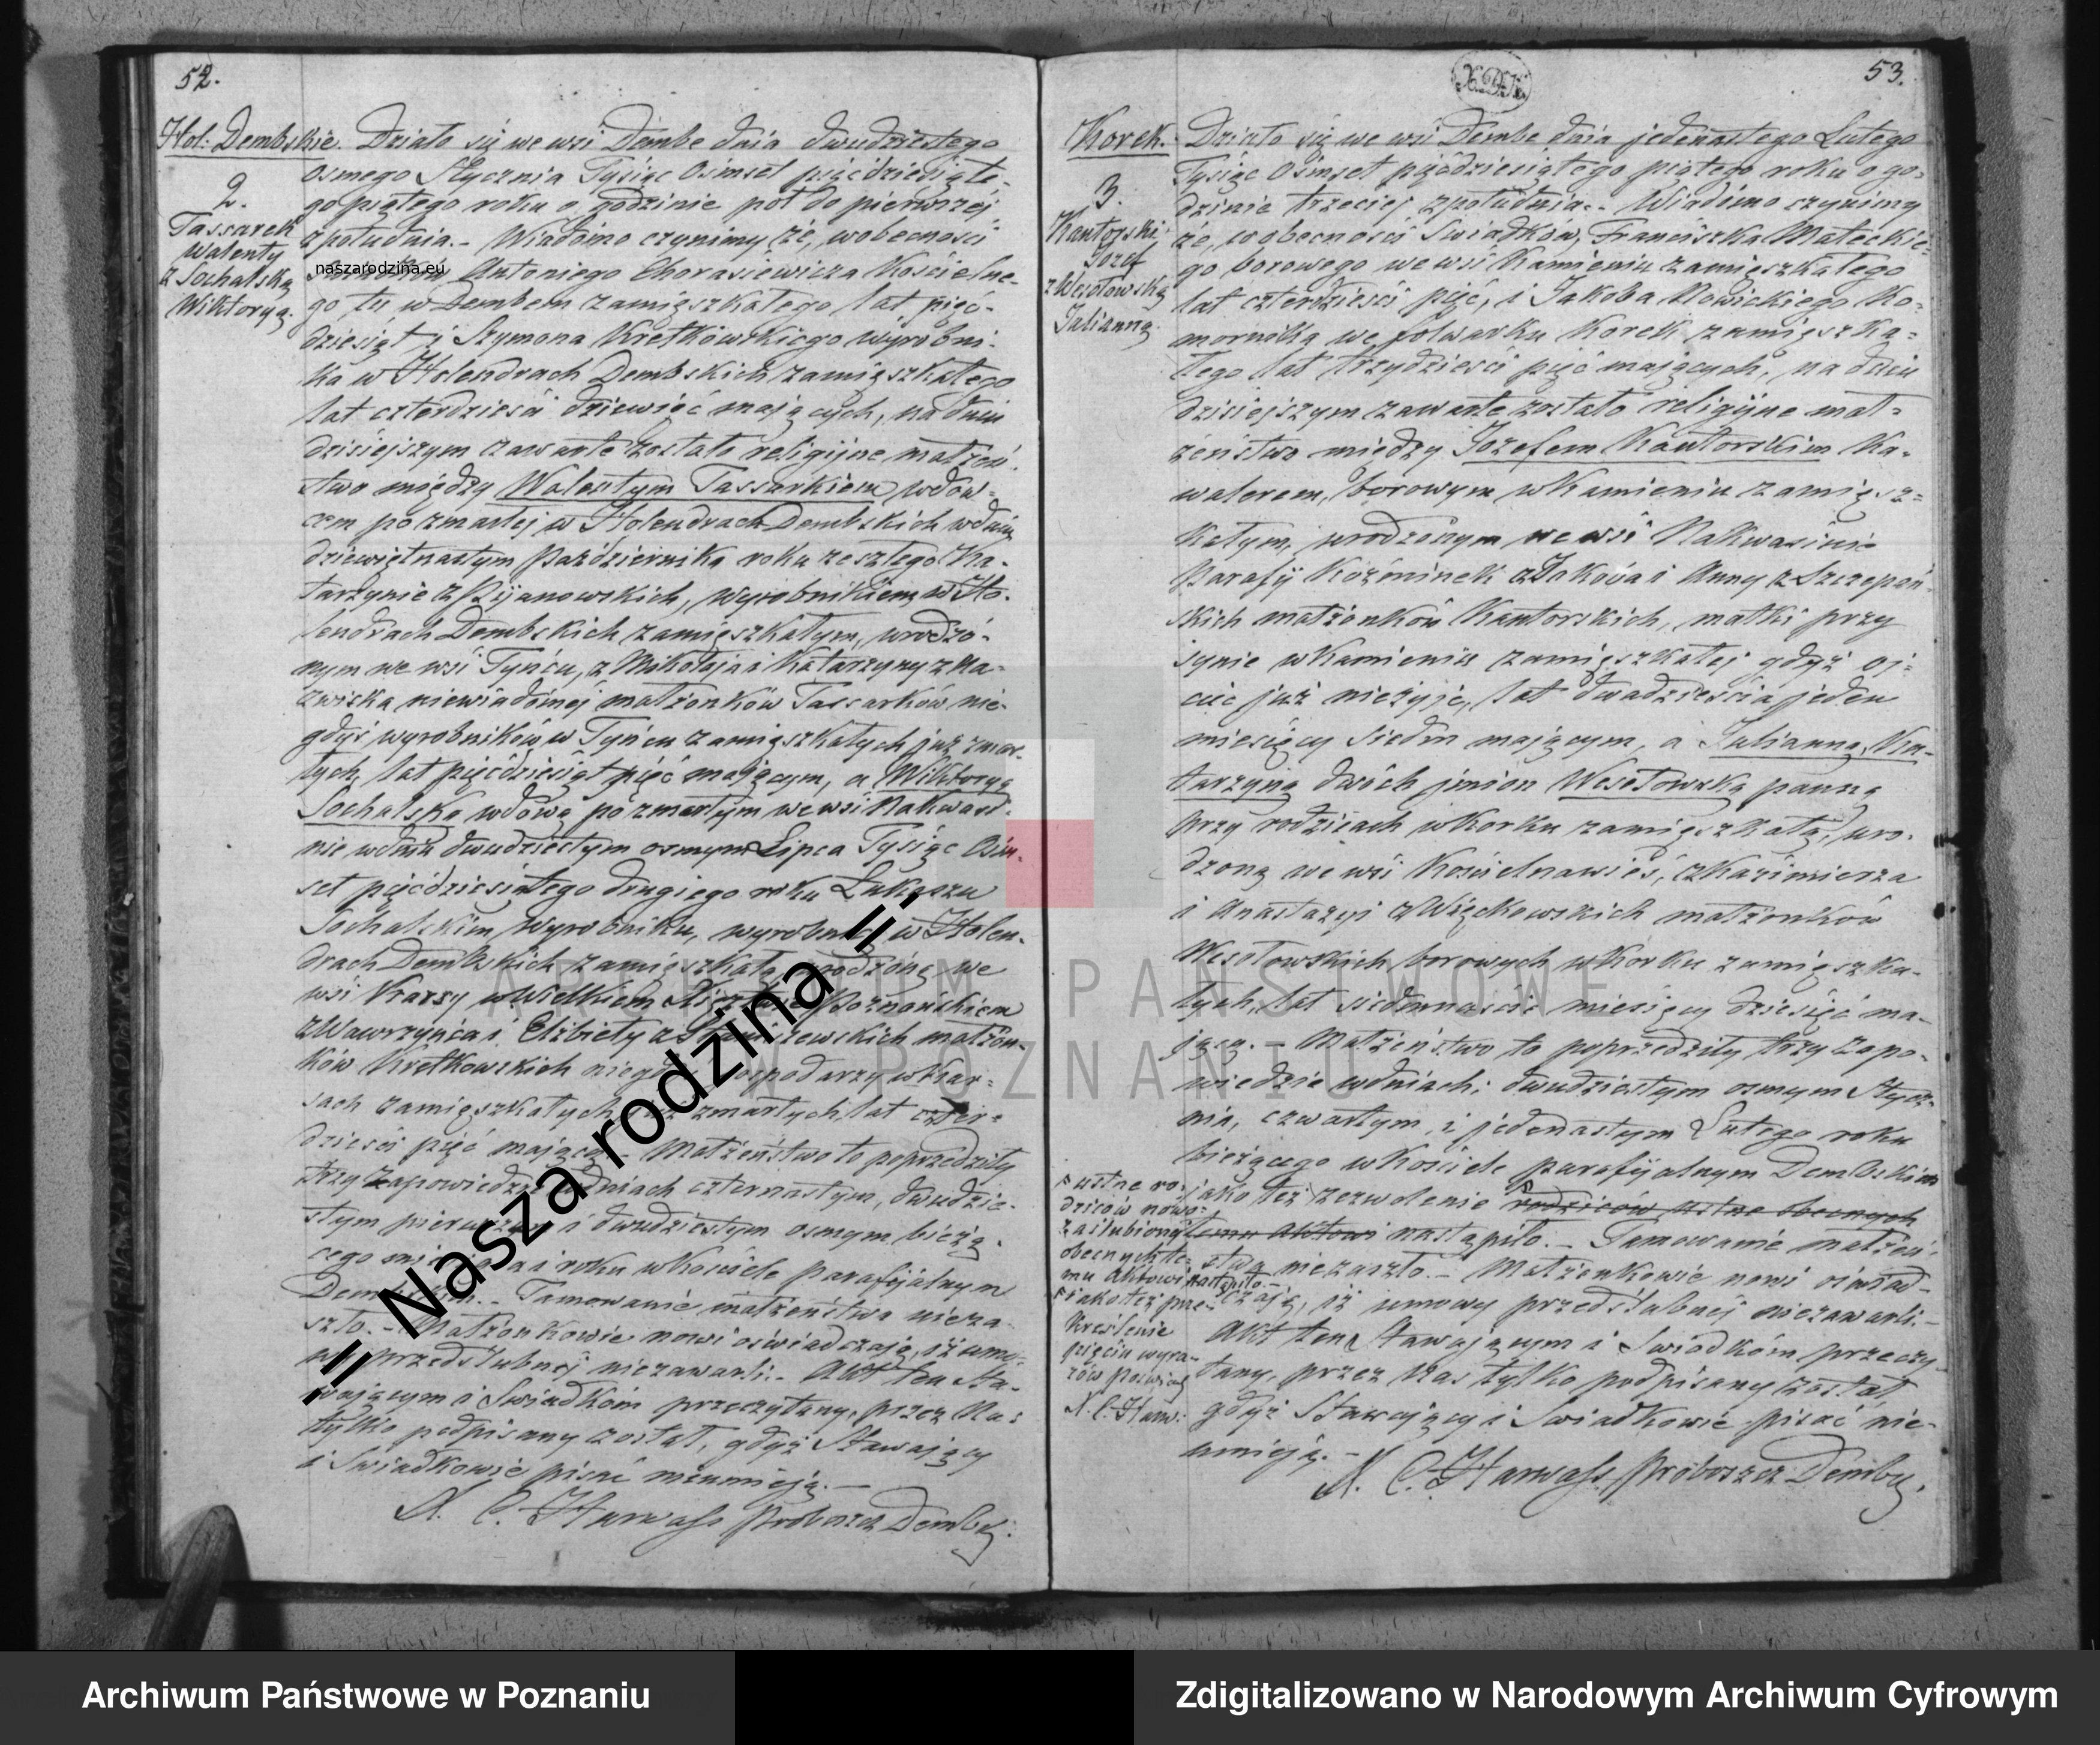 52.
Hol: Dembskie.
2.
Tassarek
Walenty
z Sochalską
Wiktoryą.
Działo się we wsi Dembe dnia dwudziestego
osmego Stycznia Tysiąc Osimset pięćdziesiąte-
go piątego roku o godzinie pół do pierwszej
z południa. - Wiadomo czynimy że, wobecności
Świadków, Antoniego Chorasiewicza Kościelne-
go tu w Dembem zamięszkałego lat pięć-
dziesiąt i Szymona Kretkowskiego wyrobni-
ka w Holendrach Dembskich zamięszkałego
lat czterdzieści dziewięć mających, na dniu
dzisiejszym zawarte zostało religijne małżeń-
stwo między Walentym Tassarkiem wdow-
cem po zmarłej w Holendrach Dembskich w dniu
dziewiętnastym Października roku zeszłego Ka-
tarzynie z Kijanowskich, wyrobnikiem w Ho-
lendrach Dembskich zamięszkałym, urodzo-
nym we wsi Tyńcu, z Mikołaja i Katarzyny z Na-
zwiska niewiadomej małżonków Tassarków nie-
gdyś wyrobników w Tyńcu zamięszkałych już zmar-
łych, lat pięćdziesiąt pięć mającym, a Wiktoryą
Sochalską wdową po zmarłym we wsi Nakwasi-
nie w dniu dwudziestym osmym Lipca Tysiąc Osim-
set pięćdziesiątego drugiego roku Łukaszu
Sochalskim Wyrobniku, wyrobnicą w Holen-
drach Dembskich zamięszkałą, urodzoną we
wsi Krarsy w Wielkiem Xięstwie Poznańskiem
z Wawrzyńca i Elżbiety z małżon-
ków Kretkowskich niegdyś gospodarzy w Krar-
sach zamięszkałych już zmarłych, lat czter-
dzieści pięć mającą. - Małżeństwo to poprzedziły
trzy zapowiedzie w dniach czternastym, dwudzie-
stym pierwszym i dwudziestym osmym bieżą-
cego miesiąca i roku w Kościele parafijalnym
Dembskim. - Tamowanie małżeństwa nieza-
szło. - Małżonkowie nowi oświadczają, iż umo-
wy przedślubnej niezawarli. - Akt ten Sta-
wającym i Świadkom przeczytany, przez Nas
tylko podpisany został, gdyż Stawający
i Świadkowie pisać nieumieją. -
X. C. Harwass Proboszcz Demby.
53.
Korek.
3.
Kantorski
Józef
z Wesołowską
Julianną.
Działo się we wsi Dembe dnia jedenastego Lutego
Tysiąc Osimset pięćdziesiątego piątego roku o go-
dzinie trzeciej z południa. - Wiadomo czynimy
że, w obecności Świadków, Franciszka Małeckie-
go borowego we wsi Kamieniu zamięszkałego
lat czterdzieści pięć, i Jakóba Nowickiego Ko-
mornika we folwarku Korek zamięszka-
łego lat trzydzieści pięć mających, na dniu
dzisiejszym zawarte zostało religijne mał-
żeństwo między Józefem Kantorskim Ka-
walerem, borowym w Kamieniu zamięsz-
kałym, urodzonym we wsi Nakwasinie
Parafij Koźminek z Jakóba i Anny z Szczepań-
skich małżonków Kantorskich, matki przy
synie w Kamieniu zamięszkałej gdyż oj-
ciec już nieżyje, lat dwadzieścia jeden
miesięcy siedm mającym, a Julianną Ka-
tarzyną dwóch imion Wesołowską panną
przy rodzicach w Korku zamięszkałą, uro-
dzoną we wsi Kościelnawieś, z Kazimierza
i Anastazyi z Więckowskich małżonków
Wesołowskich borowych w Korku zamięszka-
łych, lat siedmnaście miesięcy dziesięć ma-
jącą. - Małżeństwo to poprzedziły trzy zapo-
wiedzie w dniach: dwudziestym osmym Stycz-
nia, czwartym, i jedenastym Lutego roku
bieżącego w Kościele parafijalnym Dembskim
jako też zezwolenie rodziców ustne obecnych
temu Aktowi nastąpiło. - Tamowanie małżeń-
stwa niezaszło. - Małżonkowie nowi oświad-
czają, iż umowy przedślubnej niezawarli. -
Akt ten Stawającym i Świadkom przeczy-
tany, przez Nas tylko podpisany został,
gdyż Stawający i Świadkowie pisać nie-
umieją. -
X. C. Harwass Proboszcz Demby.
ustne ro-
dziców nowo-
zaślubionych
obecnych te-
mu Aktowi nastąpiło. -
jako też prze-
kreślenie
pięciu wyra-
zów
X. C. Harw:
naszarodzina.eu
= Nasza rodzina =
ARCHIWUM PAŃSTWOWE
W POZNANIU
Archiwum Państwowe w Poznaniu
Zdigitalizowano w Narodowym Archiwum Cyfrowym